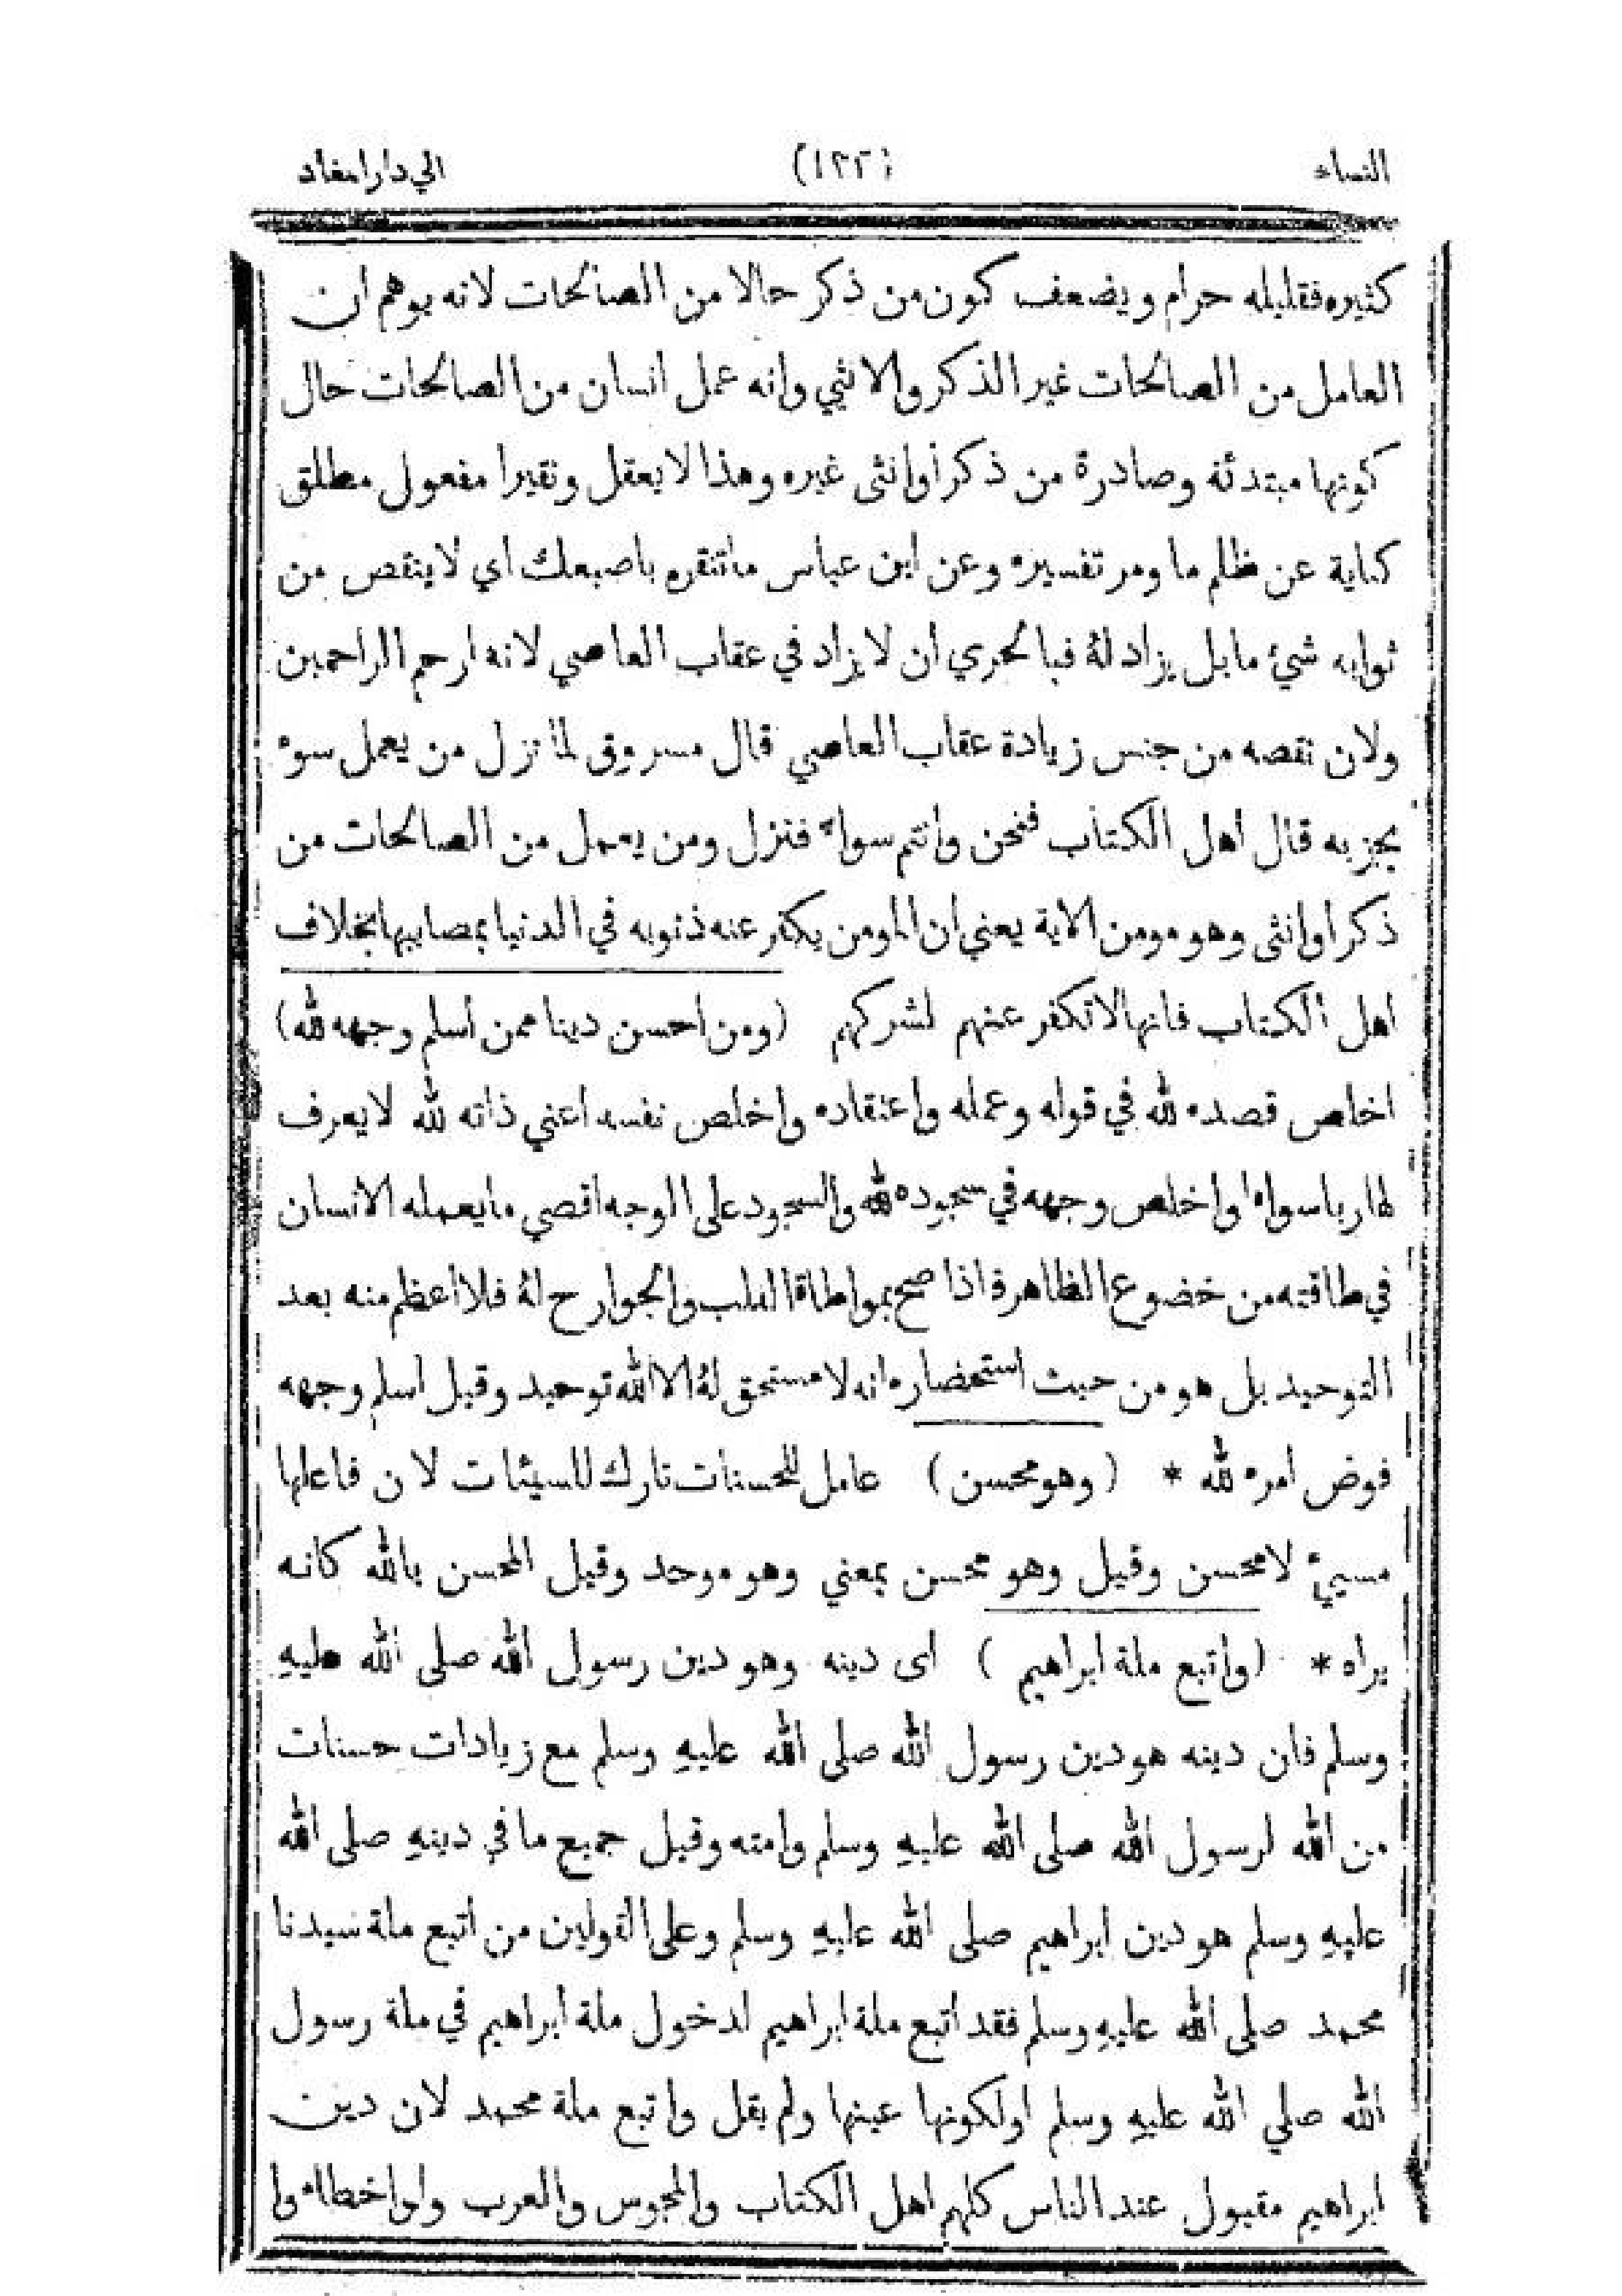 النساء (١٢٢) الي دار امغاد
كثيره فقليله حرام ويضعف كون من ذكر حالا من الصالحات لانه يوهم ان
العامل من الصالحات غير الذكر والانثي وانه عمل انسان من الصالحات حال
كونها مبتدئه وصادرة من ذكر أو انثى غيره وهذا لا يعقل ونقيرا مفعول مطلق
كناية عن ظلم ما ومر تفسيره وعن ابن عباس ما تنقره باصبعك اي لا ينقص من
ثوابه شيئ ما بل يزاد لهُ فبالحري ان لا يزاد في عقاب العاصي لانه ارحم الراحمين
ولان نقصه من جنس زيادة عقاب العاصي قال مسروق لما نزل من يعمل سوء
يجز به قال اهل الكتاب فنحن وانتم سواء فنزل ومن يعمل من الصالحات من
ذكر او انثى وهو مومن الاية يعني ان المومن يكفر عنه ذنوبه في الدنيا بمصايبها بخلاف
اهل الكتاب فانها لا تكفر عنهم لشركهم (ومن احسن دينا ممن اسلم وجهه لله)
اخلص قصده لله في قوله وعمله واعتقاده واخلص نفسه اعني ذاته لله لا يعرف
لها ربا سواه او اخلص وجهه في سجوده لله والسجود على الوجه اقصي ما يعمله الانسان
في طاقته من خضوع الظاهر فاذا صح بمواطاة القلب والجوارح لهُ فلا اعظم منه بعد
التوحيد بل هو من حيث استحضاره انه لا مستحق لهُ الا الله توحيد وقيل اسلم وجهه
فوض امره لله * (وهو محسن) عامل للحسنات تارك للسيئات لان فاعلها
مسيئ لا محسن وقيل وهو محسن بمعني وهو موحد وقيل المحسن بالله كانه
يراه * (واتبع ملة ابراهيم) اى دينه وهو دين رسول الله صلى الله عليهِ
وسلم فان دينه هو دين رسول الله صلى الله عليهِ وسلم مع زيادات حسنات
من الله لرسول الله صلى الله عليهِ وسلم وامته وقيل جميع ما في دينهِ صلى الله
عليهِ وسلم هو دين ابراهيم صلى الله عليهِ وسلم وعلى القولين من اتبع ملة سيدنا
محمد صلى الله عليهِ وسلم فقد اتبع ملة ابراهيم لدخول ملة ابراهيم في ملة رسول
الله صلي الله عليهِ وسلم او لكونها عينها ولم يقل واتبع ملة محمد لان دين
ابراهيم مقبول عند الناس كلهم اهل الكتاب والمجوس والعرب ولو اخطاءوا